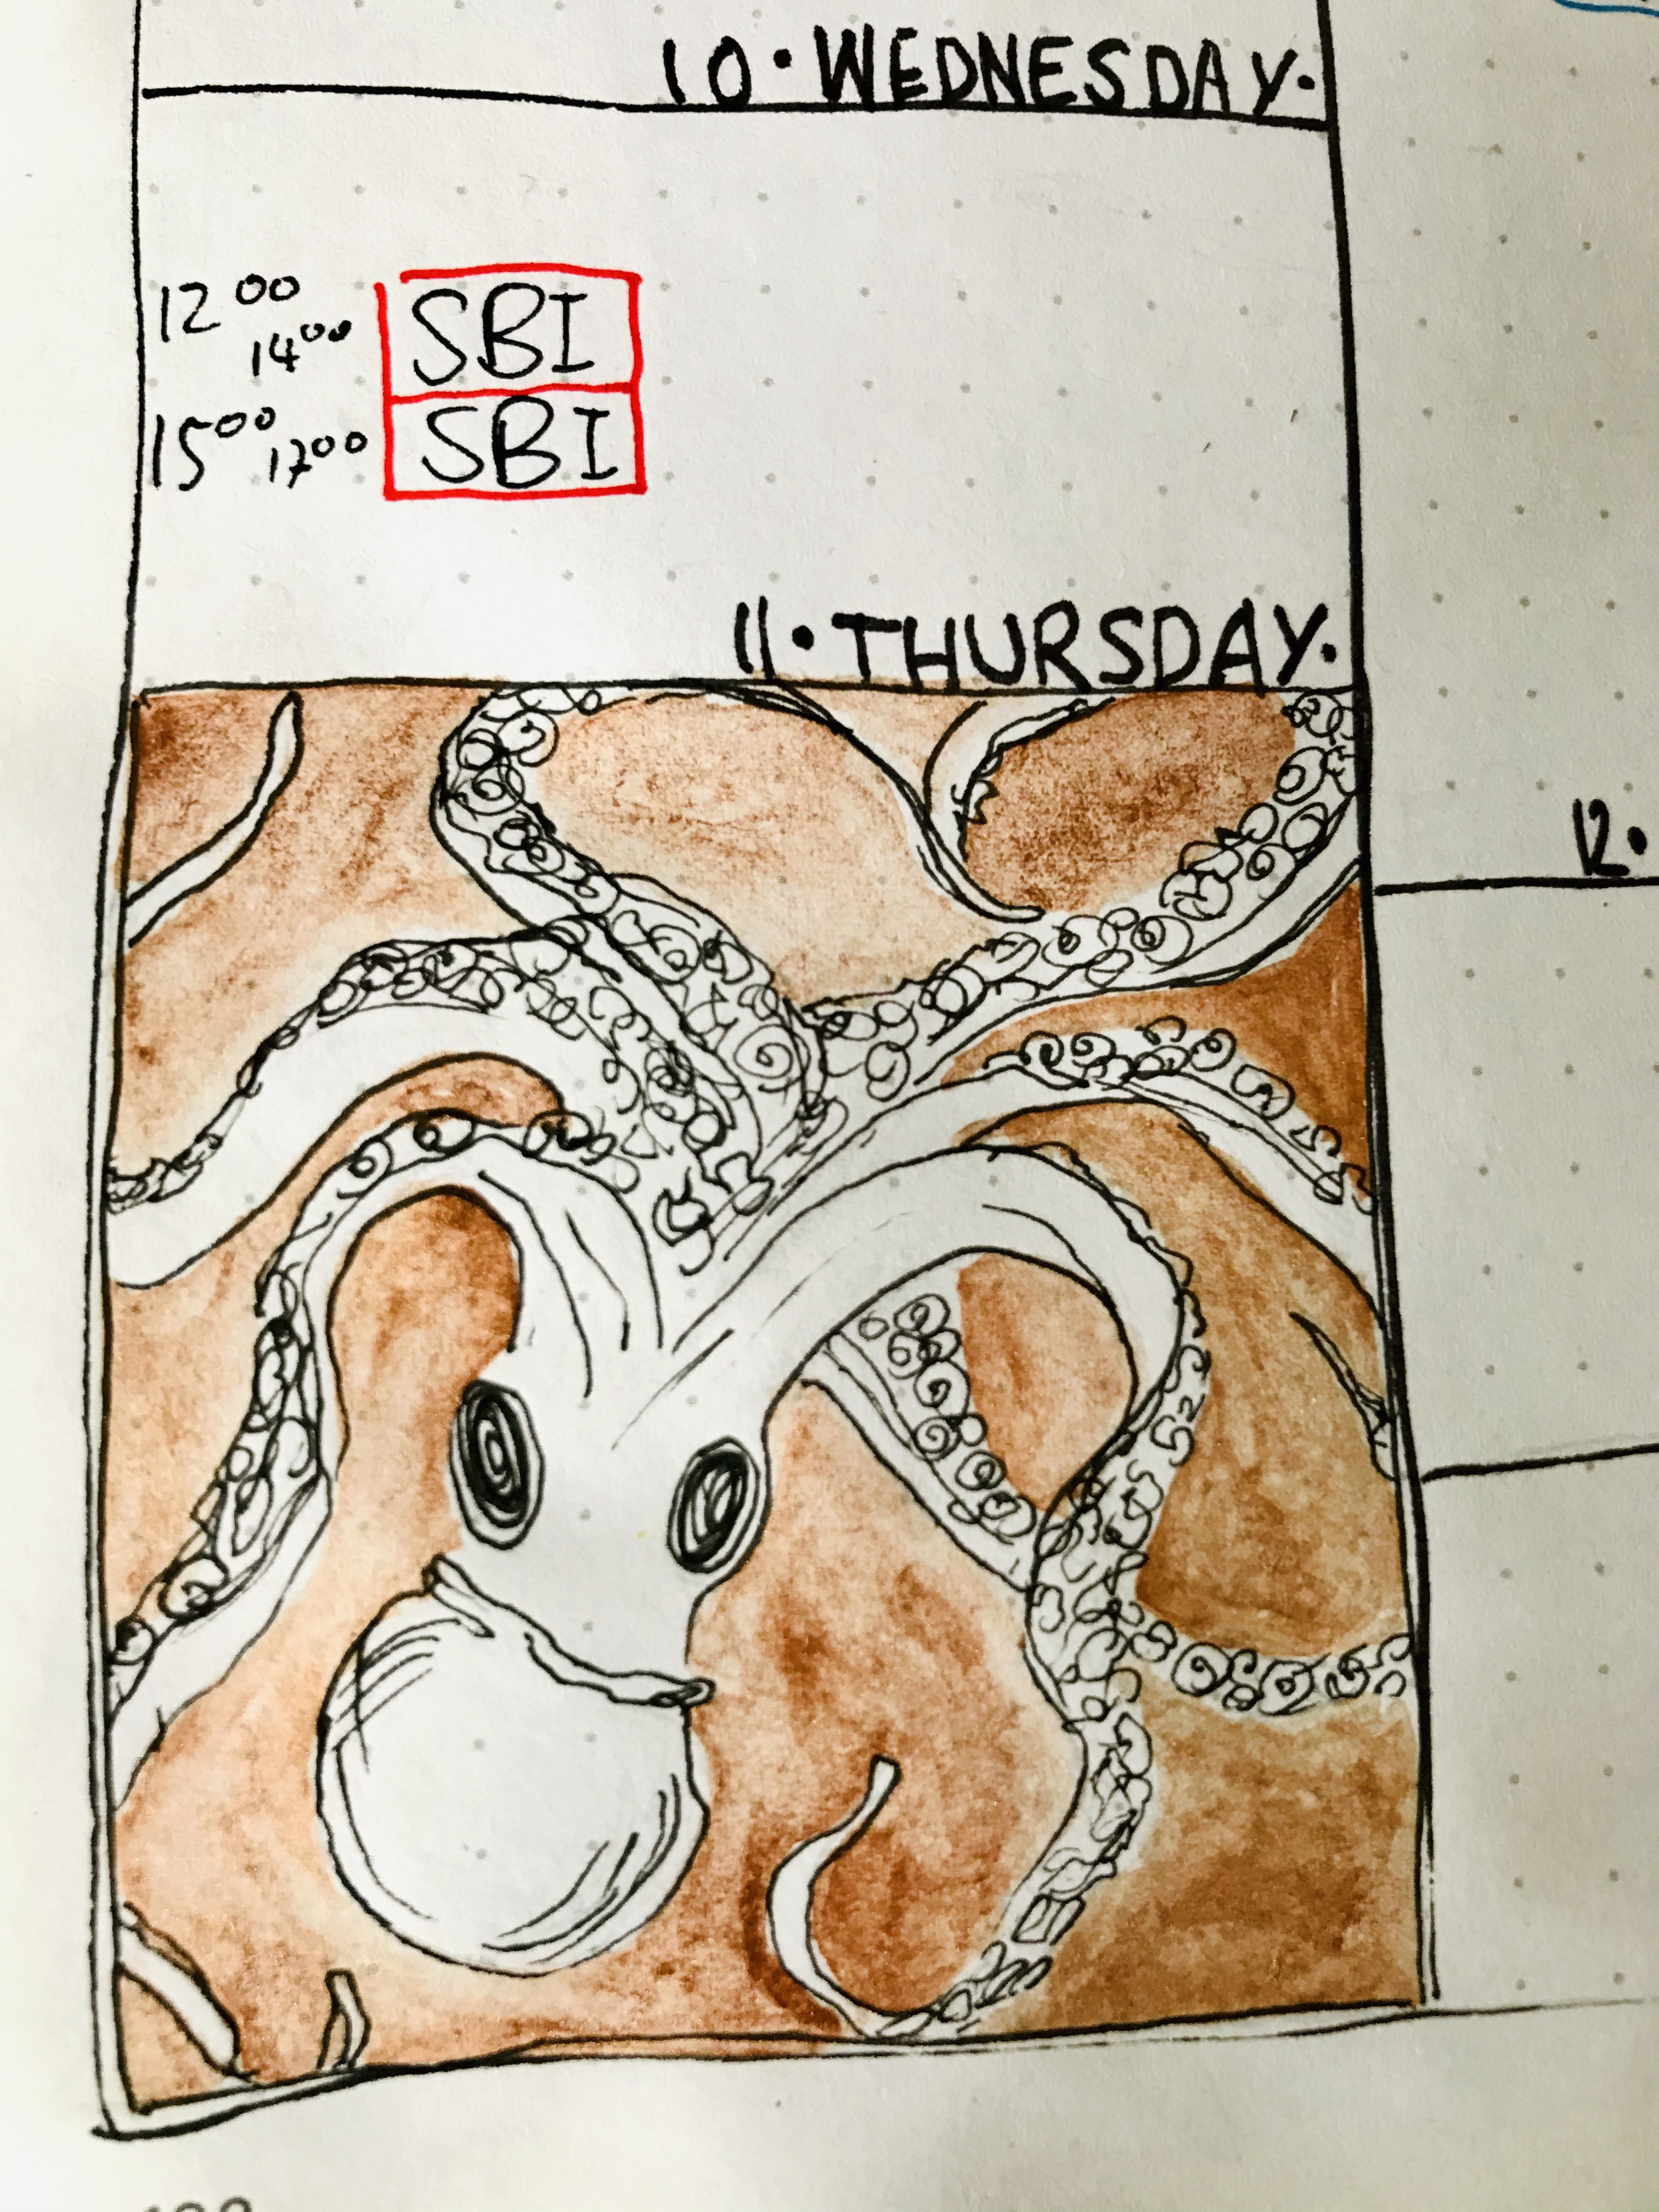 10·WEDNESDAY·
12⁰⁰ 14⁰⁰ SBI
15⁰⁰ 17⁰⁰ SBI
11·THURSDAY·
12·